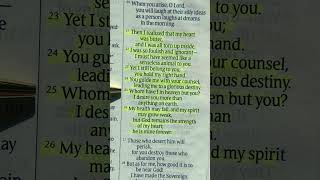 When you arise, O Lord,
you will laugh at their silly ideas
as a person laughs at dreams
in the morning.
Then I realized that my heart
was bitter,
and I was all torn up inside.
I was so foolish and ignorant—
I must have seemed like a
senseless animal to you.
23 Yet I still belong to you;
you hold my right hand.
24 You guide me with your counsel,
leading me to a glorious destiny.
25 Whom have I in heaven but you?
I desire you more than
anything on earth.
26 My health may fail, and my spirit
may grow weak,
but God remains the strength
of my heart;
he is mine forever.
Those who desert him will
perish,
for you destroy those who
abandon you.
But as for me, how good it is to
be near God!
I have made the Sovereign